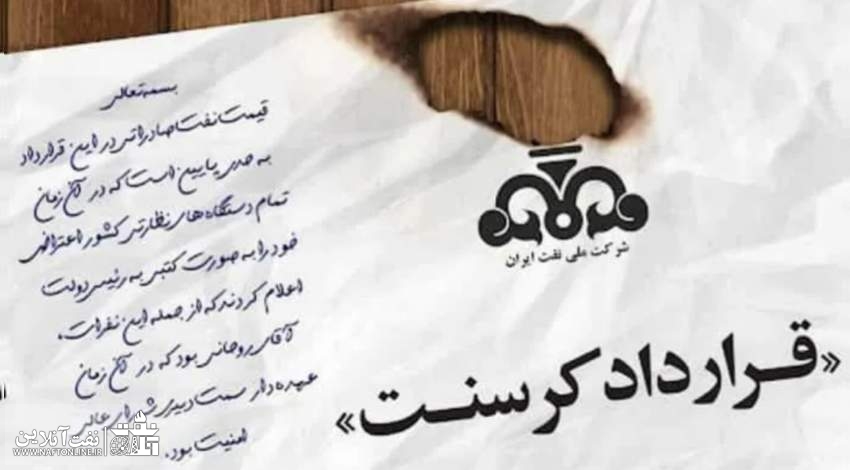 بسمه‌تعالی
قیمت نفت صادراتی در این قرارداد
به حدی پایین است که در آن زمان
تمام دستگاه‌های نظارتی کشور اعتراض
خود را به صورت کتبی به رئیس دولت
اعلام کردند که از جمله این نفرات،
آقای روحانی بود که در آن زمان
عهده‌دار سمت دبیری شورای عالی
امنیت بود.
شرکت ملی نفت ایران
«قرارداد کرسنت»
نفت آنلاین
WWW.NAFTONLINE.IR